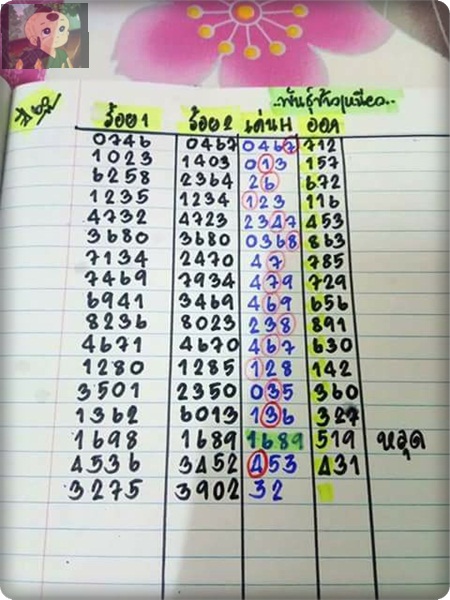 ..พันธุ์ข้าวเหนียว..
ร้อย 1 ร้อย 2 เด่นH ออก
0746 0467 0467 712
1023 1403 013 157
6258 2364 26 672
1235 1234 123 116
4732 4723 2347 453
3680 3680 0368 863
7134 2470 47 785
7469 7934 479 729
6941 3469 469 656
8236 8023 238 891
4671 4670 467 630
1280 1285 128 142
3501 2350 035 360
1362 6013 136 327
1698 1689 1689 519 หลุด
4536 3452 453 431
3275 3902 32